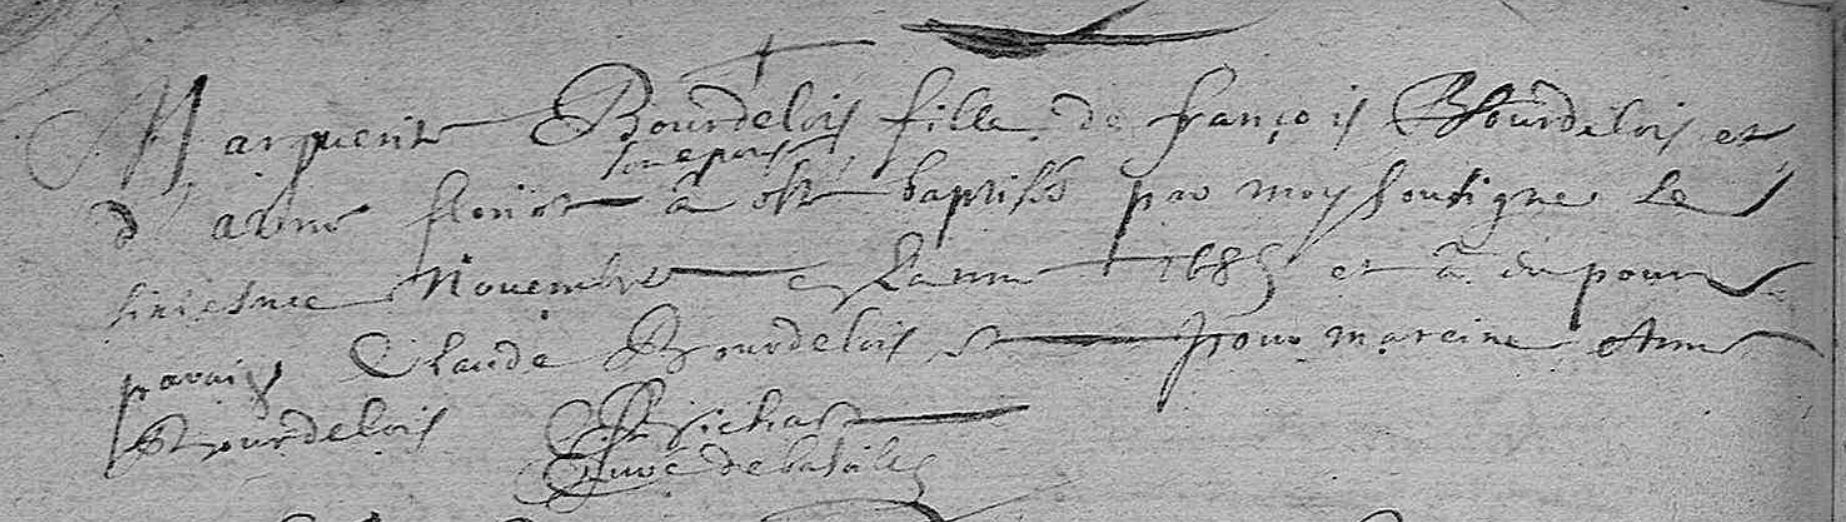 Marguerite Bourdelois fille de françois Bourdelois et
son epouse
d'anne a esté baptisée par moy soubsigné le
Novembre l'annee 1685 et a eu pour
parain Claude Bourdelois et pour mareine Anne
Bourdelois Richard
Curé de